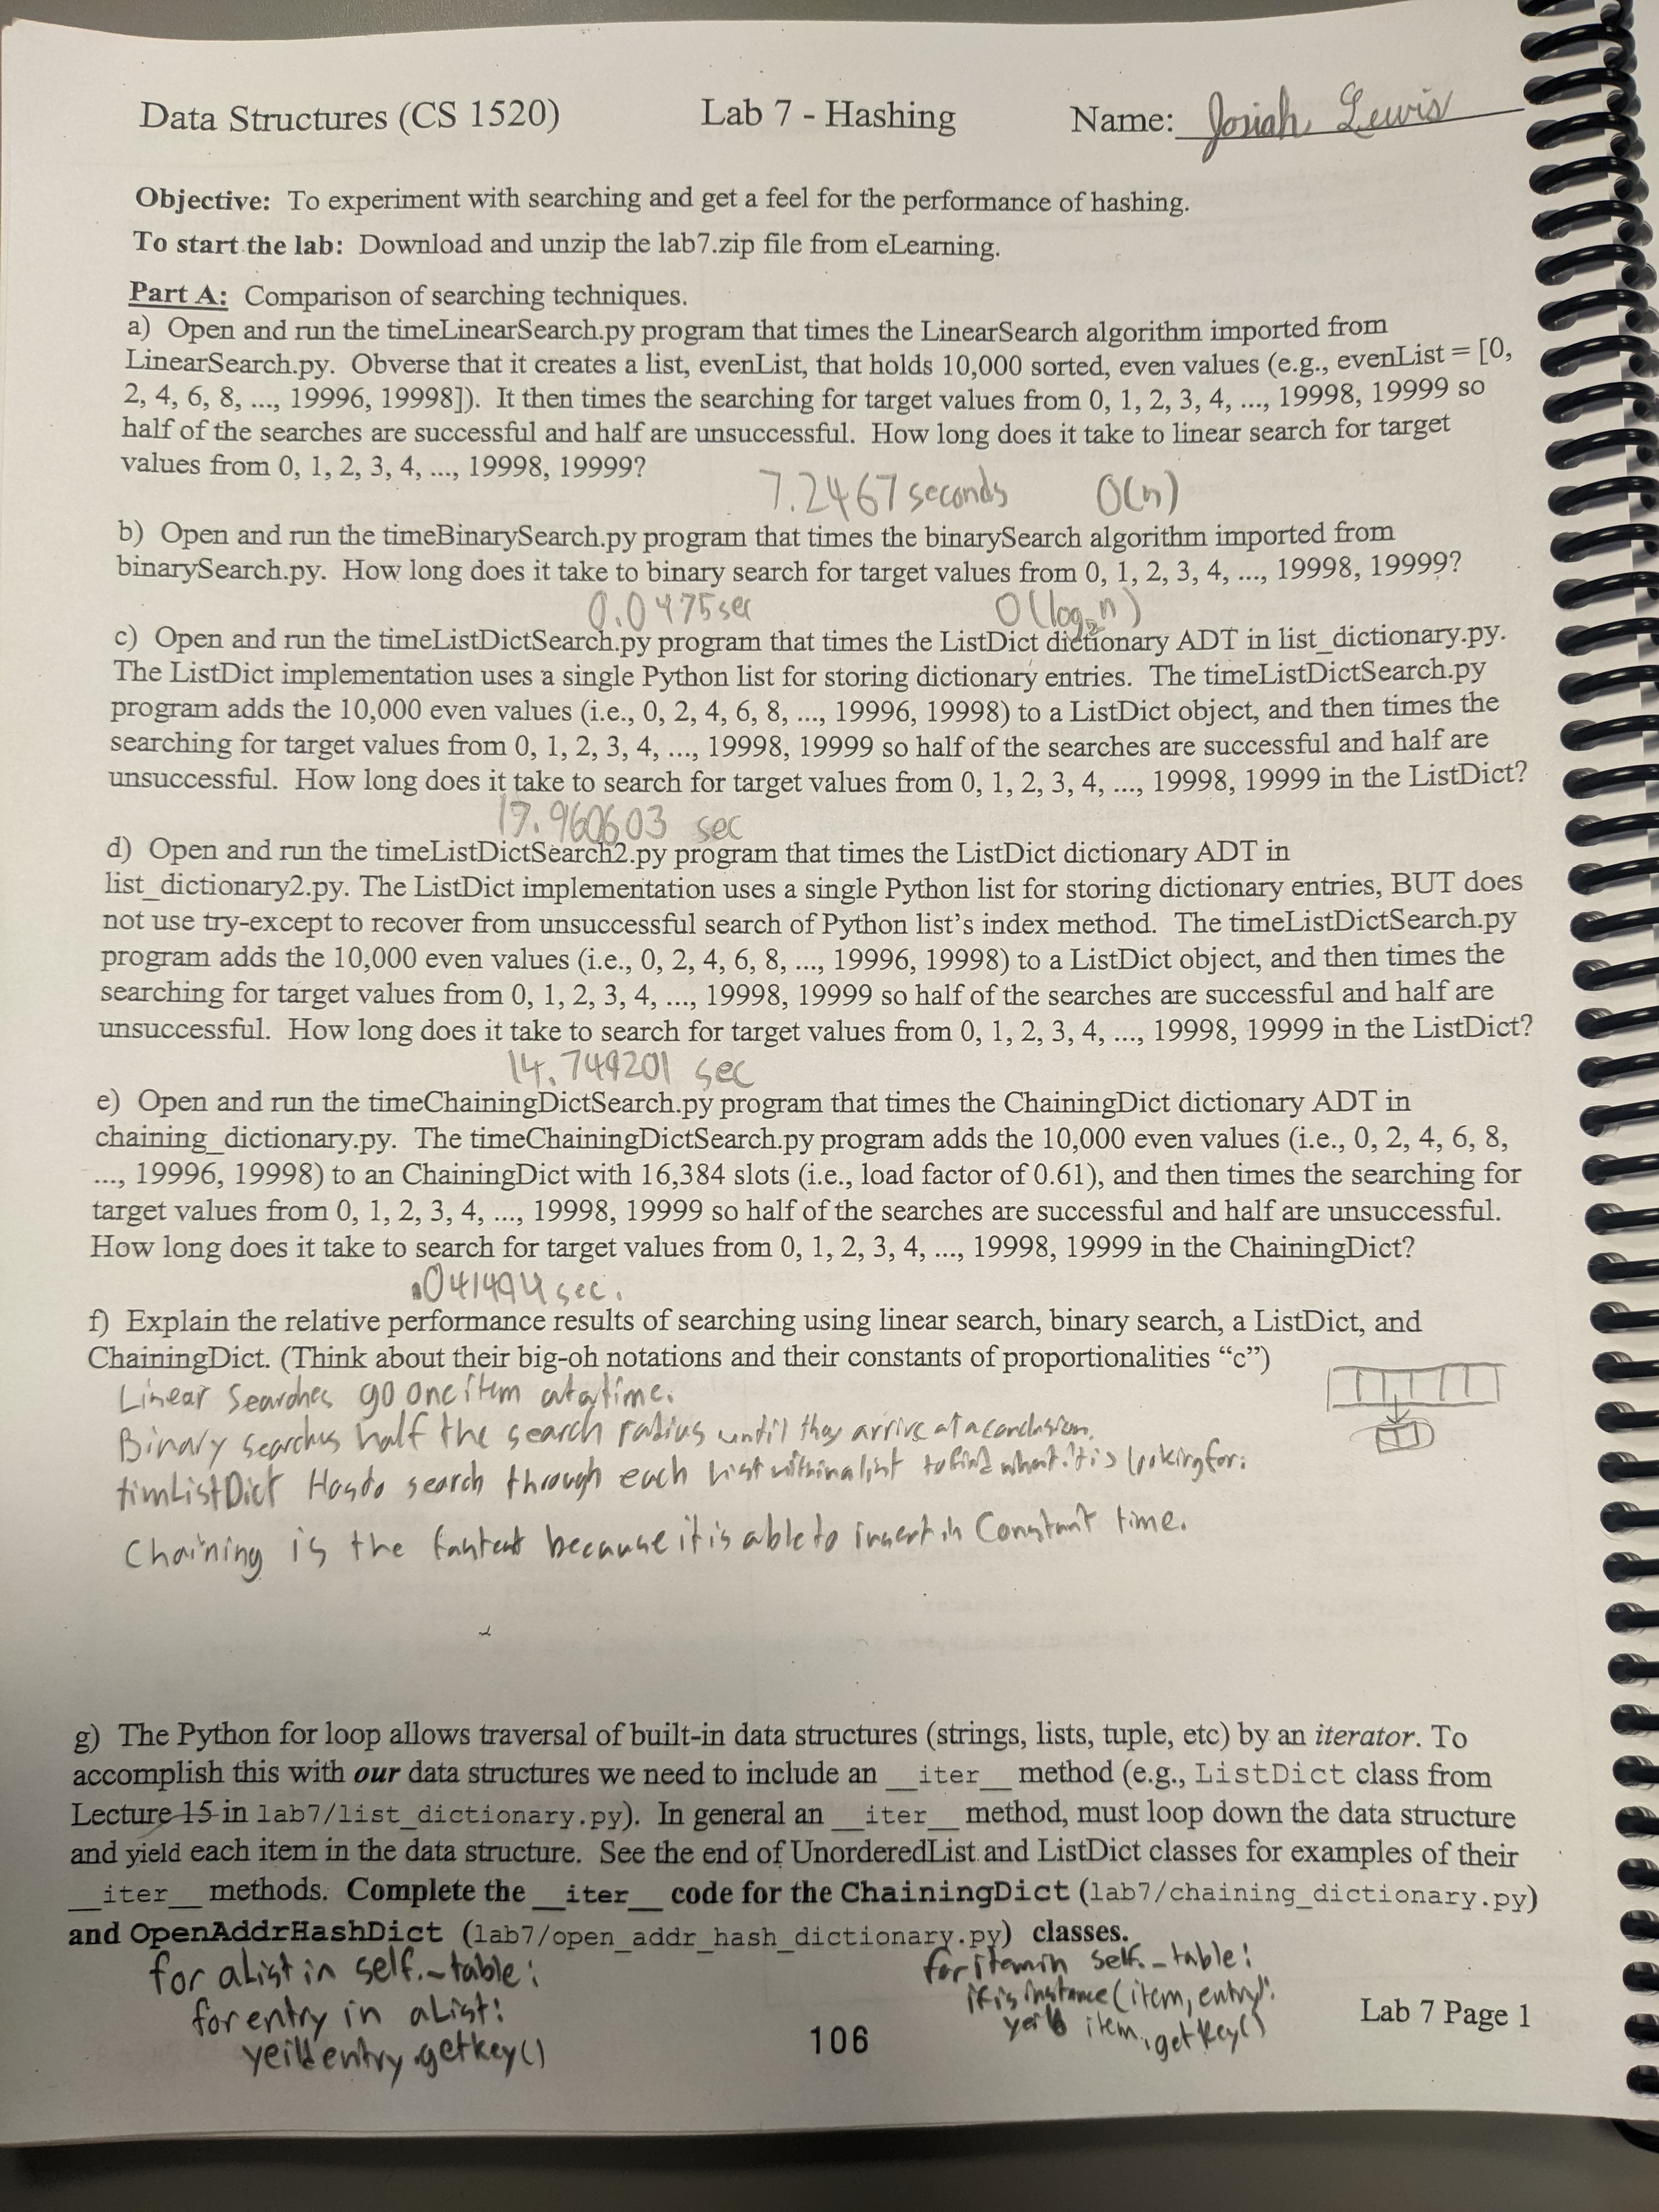 Data Structures (CS 1520) Lab 7 - Hashing Name: Josiah Lewis
Objective: To experiment with searching and get a feel for the performance of hashing.
To start the lab: Download and unzip the lab7.zip file from eLearning.
Part A: Comparison of searching techniques.
a) Open and run the timeLinearSearch.py program that times the LinearSearch algorithm imported from
LinearSearch.py. Obverse that it creates a list, evenList, that holds 10,000 sorted, even values (e.g., evenList = [0,
2, 4, 6, 8, ..., 19996, 19998]). It then times the searching for target values from 0, 1, 2, 3, 4, ..., 19998, 19999 so
half of the searches are successful and half are unsuccessful. How long does it take to linear search for target
values from 0, 1, 2, 3, 4, ..., 19998, 19999?
7.2467 seconds O(n)
b) Open and run the timeBinarySearch.py program that times the binarySearch algorithm imported from
binarySearch.py. How long does it take to binary search for target values from 0, 1, 2, 3, 4, ..., 19998, 19999?
0.0475 sec O(log₂n)
c) Open and run the timeListDictSearch.py program that times the ListDict dictionary ADT in list_dictionary.py.
The ListDict implementation uses a single Python list for storing dictionary entries. The timeListDictSearch.py
program adds the 10,000 even values (i.e., 0, 2, 4, 6, 8, ..., 19996, 19998) to a ListDict object, and then times the
searching for target values from 0, 1, 2, 3, 4, ..., 19998, 19999 so half of the searches are successful and half are
unsuccessful. How long does it take to search for target values from 0, 1, 2, 3, 4, ..., 19998, 19999 in the ListDict?
sec
d) Open and run the timeListDictSearch2.py program that times the ListDict dictionary ADT in
list_dictionary2.py. The ListDict implementation uses a single Python list for storing dictionary entries, BUT does
not use try-except to recover from unsuccessful search of Python list's index method. The timeListDictSearch.py
program adds the 10,000 even values (i.e., 0, 2, 4, 6, 8, ..., 19996, 19998) to a ListDict object, and then times the
searching for target values from 0, 1, 2, 3, 4, ..., 19998, 19999 so half of the searches are successful and half are
unsuccessful. How long does it take to search for target values from 0, 1, 2, 3, 4, ..., 19998, 19999 in the ListDict?
14.749201 sec
e) Open and run the timeChainingDictSearch.py program that times the ChainingDict dictionary ADT in
chaining_dictionary.py. The timeChainingDictSearch.py program adds the 10,000 even values (i.e., 0, 2, 4, 6, 8,
..., 19996, 19998) to an ChainingDict with 16,384 slots (i.e., load factor of 0.61), and then times the searching for
target values from 0, 1, 2, 3, 4, ..., 19998, 19999 so half of the searches are successful and half are unsuccessful.
How long does it take to search for target values from 0, 1, 2, 3, 4, ..., 19998, 19999 in the ChainingDict?
.041494 sec.
f) Explain the relative performance results of searching using linear search, binary search, a ListDict, and
ChainingDict. (Think about their big-oh notations and their constants of proportionalities “c”)
Linear Searches go one item at a time.
Binary searches half the search radius until they arrive at a conclusion.
timListDict Has to search through each list within a list to find what it is looking for.
Chaining is the fastest because it is able to insert in Constant time.
g) The Python for loop allows traversal of built-in data structures (strings, lists, tuple, etc) by an iterator. To
accomplish this with our data structures we need to include an __iter__ method (e.g., ListDict class from
Lecture 15 in lab7/list_dictionary.py). In general an __iter__ method, must loop down the data structure
and yield each item in the data structure. See the end of UnorderedList and ListDict classes for examples of their
__iter__ methods. Complete the __iter__ code for the ChainingDict (lab7/chaining_dictionary.py)
and OpenAddrHashDict (lab7/open_addr_hash_dictionary.py) classes.
for aList in self._table:
for entry in aList:
yeild entry.getkey()
for item in self._table:
if isinstance(item, entry):
yeild item.getkey()
106
Lab 7 Page 1